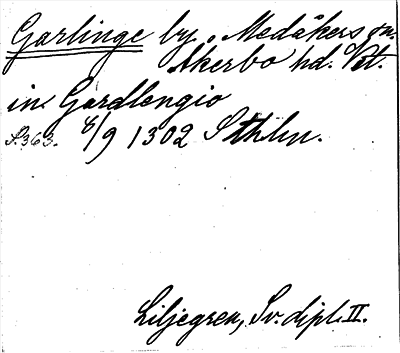 Garlinge by, Medåkers sn.
Åkerbo hd. Vst.
in Gardlengio
S. 363. 8/9 1302 Sthlm.
Liljegren, Sv. dipl. II.